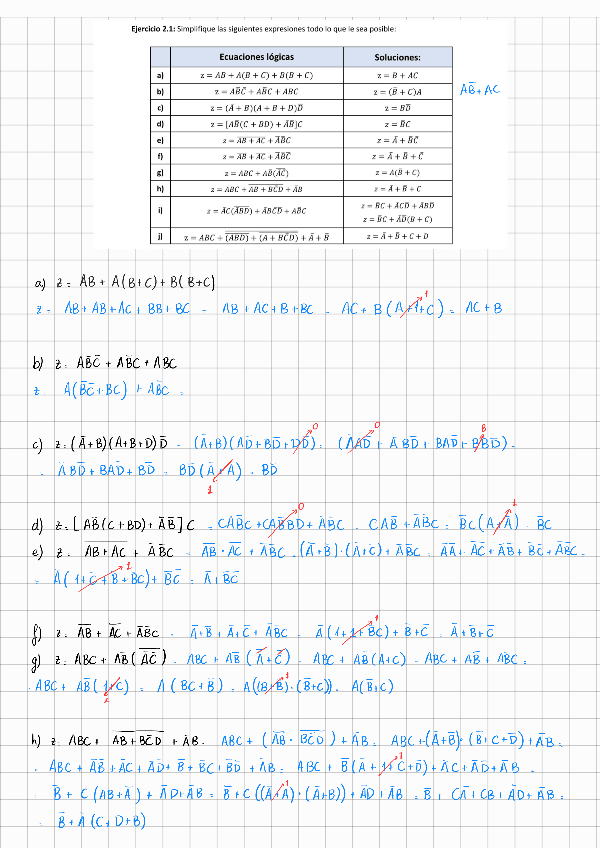 Ejercicio 2.1: Simplifique las siguientes expresiones todo lo que le sea posible:
Ecuaciones lógicas Soluciones:
a) z = AB + A(B + C) + B(B + C) z = B + AC
b) z = AB̄C̄ + AB̄C + ABC z = (B̄ + C)A
AB̄ + AC
c) z = (Ā + B)(A + B + D)D̄ z = BD̄
d) z = [AB̄(C + BD) + ĀB̄]C z = B̄C
e) z = \overline{AB + AC} + ĀB̄C z = Ā + B̄C̄
f) z = \overline{AB} + \overline{AC} + ĀB̄C̄ z = Ā + B̄ + C̄
g) z = ABC + AB̄(\overline{ĀC̄}) z = A(B̄ + C)
h) z = ABC + \overline{AB + BC̄D} + ĀB z = Ā + B̄ + C
i) z = ĀC(\overline{ĀBD}) + ĀBC̄D̄ + AB̄C z = B̄C + ĀCD̄ + ĀBD̄
z = B̄C + ĀD̄(B + C)
j) z = Ā + B̄ + C + D
a) z = AB + A(B+C) + B(B+C)
z = AB + AB + AC + BB + BC = AB + AC + B + BC = AC + B(A+1+C) 1 = AC + B
b) z = AB̄C̄ + AB̄C + ABC
z = A(B̄C̄ + BC) + AB̄C =
c) z = (Ā+B)(A+B+D)D̄ = (Ā+B)(AD̄+BD̄+DD̄) 0 = (ĀAD̄ 0 + ĀBD̄ + BAD̄ + BBD̄ B) =
= ĀBD̄ + BAD̄ + BD̄ = BD̄(Ā+A) 1 = BD̄
d) z = [AB̄(C+BD) + ĀB̄]C = CAB̄C + CAB̄BD 0 + ĀB̄C = CAB̄ + ĀB̄C = B̄C(A+Ā) 1 = B̄C
e) z = \overline{AB+AC} + ĀB̄C = \overline{AB}·\overline{AC} + ĀB̄C = (Ā+B̄)·(Ā+C̄) + ĀB̄C = ĀĀ + ĀC̄ + ĀB̄ + B̄C̄ + ĀB̄C =
= Ā(1+C̄+B̄+B̄C) 1 + B̄C̄ = Ā + B̄C̄
f) z = \overline{AB} + \overline{AC} + ĀB̄C = Ā+B̄ + Ā+C̄ + ĀB̄C = Ā(1+1+B̄C) 1 + B̄+C̄ = Ā+B̄+C̄
g) z = ABC + AB̄(\overline{ĀC̄}) = ABC + AB̄(A+C) = ABC + AB̄(A+C) = ABC + AB̄ + AB̄C =
= ABC + AB̄(1+C) 1 = A(BC+B̄) = A((B+B̄) 1·(B̄+C)) = A(B̄+C)
h) z = ABC + \overline{AB+BC̄D} + ĀB = ABC + (\overline{AB}·\overline{BC̄D}) + ĀB = ABC + (Ā+B̄)·(B̄+C+D̄) + ĀB =
= ABC + ĀB̄ + ĀC + ĀD̄ + B̄ + B̄C + B̄D̄ + ĀB = ABC + B̄(Ā+1+C+D̄) 1 + ĀC + ĀD̄ + ĀB =
= B̄ + C(AB+Ā) + ĀD̄ + ĀB = B̄ + C((A+Ā) 1·(Ā+B)) + ĀD̄ + ĀB = B̄ + CĀ + CB + ĀD̄ + ĀB =
= B̄ + Ā(C+D̄+B)